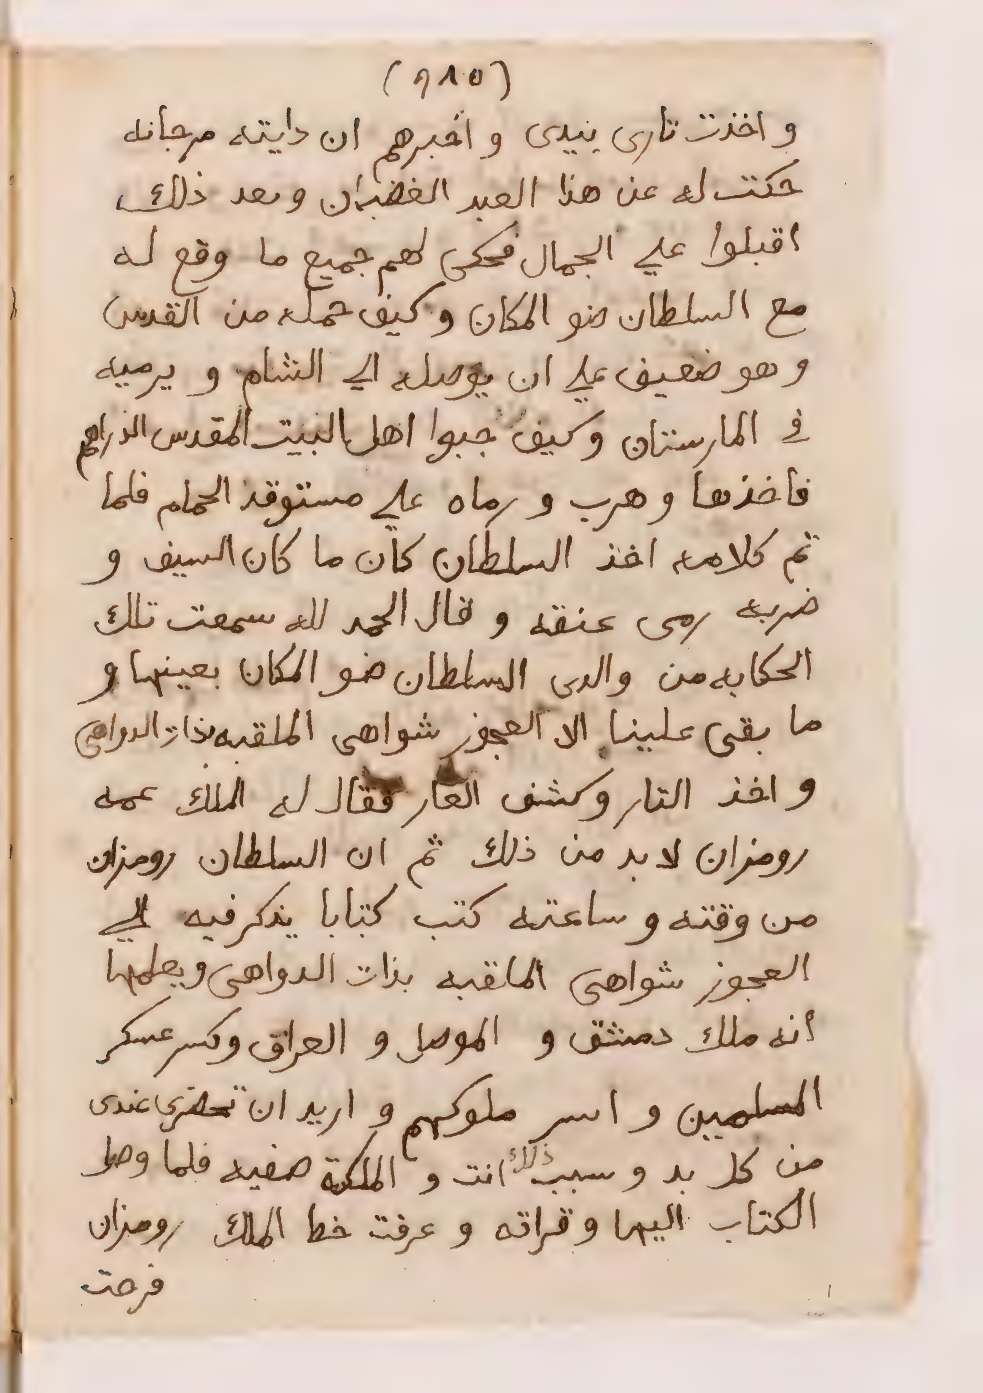 (٩١٥)
و اخذت تارى بيدى و اخبرهم ان دايته مرجانه
حكت له عن هذا العبد الغضبان وبعد ذلك
اقبلوا علي الجمال فحكى لهم جميع ما وقع له
مع السلطان ضو المكان وكيف حمله من القدس
و هو ضعيف علي ان يوصله الي الشام و يرميه
في المارستان وكيف جبوا اهل البيت المقدس الدراهم
فاخذها و هرب و رماه علي مستوقد الحمام فلما
تم كلامه اخذ السلطان كان ما كان السيف و
ضربه رمى عنقه و قال الحمد لله سمعت تلك
الحكايه من والدى السلطان ضو المكان بعينها و
ما بقى علينا الا العجوز شواهى الملقبه بذات الدواهى
و اخذ التار وكشف العار فقال له الملك عمه
رومزان لا بد من ذلك ثم ان السلطان رومزان
من وقته و ساعته كتب كتابا يذكر فيه الي
العجوز شواهى الملقبه بذات الدواهى و يعلمها
أنه ملك دمشق و الموصل و العراق وكسر عسكر
المسلمين و اسر ملوكهم و اريد ان تحضرى عندى
من كل بد و سبب ذلك انت و الملكة صفيه فلما وصل
الكتاب اليها و قراته و عرفت خط الملك رومزان
فرحت